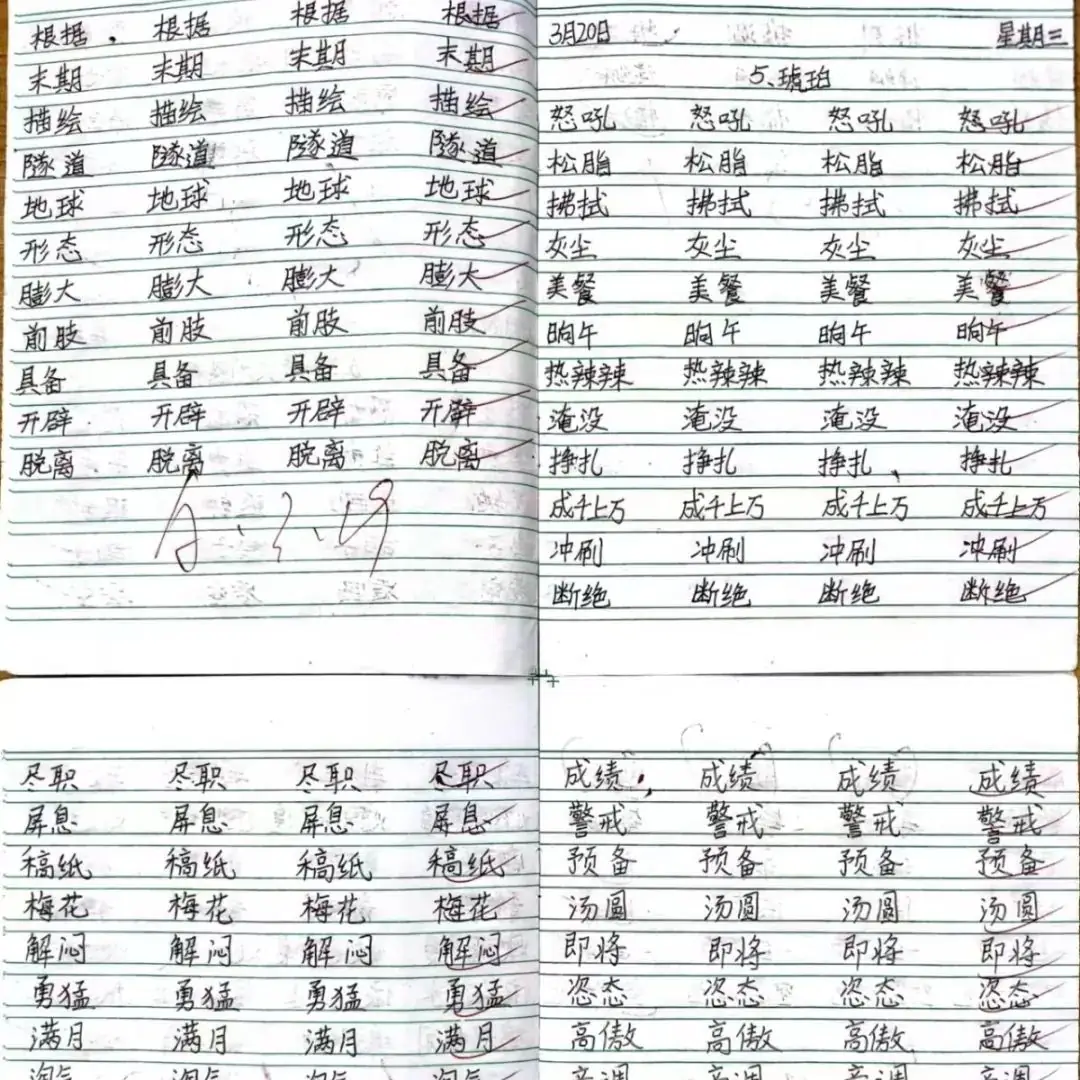 根据 根据 根据 根据
末期 末期 末期 末期
描绘 描绘 描绘 描绘
隧道 隧道 隧道 隧道
地球 地球 地球 地球
形态 形态 形态 形态
膨大 膨大 膨大 膨大
前肢 前肢 前肢 前肢
具备 具备 具备 具备
开辟 开辟 开辟 开辟
脱离 脱离 脱离 脱离
3月20日 星期三
5、琥珀
怒吼 怒吼 怒吼 怒吼
松脂 松脂 松脂 松脂
拂拭 拂拭 拂拭 拂拭
灰尘 灰尘 灰尘 灰尘
美餐 美餐 美餐 美餐
晌午 晌午 晌午 晌午
热辣辣 热辣辣 热辣辣 热辣辣
淹没 淹没 淹没 淹没
挣扎 挣扎 挣扎 挣扎
成千上万 成千上万 成千上万 成千上万
冲刷 冲刷 冲刷 冲刷
断绝 断绝 断绝 断绝
尽职 尽职 尽职 尽职
屏息 屏息 屏息 屏息
稿纸 稿纸 稿纸 稿纸
梅花 梅花 梅花 梅花
解闷 解闷 解闷 解闷
勇猛 勇猛 勇猛 勇猛
满月 满月 满月 满月
淘气 淘气 淘气 淘气
成绩 成绩 成绩 成绩
警戒 警戒 警戒 警戒
预备 预备 预备 预备
汤圆 汤圆 汤圆 汤圆
即将 即将 即将 即将
姿态 姿态 姿态 姿态
高傲 高傲 高傲 高傲
音调 音调 音调 音调